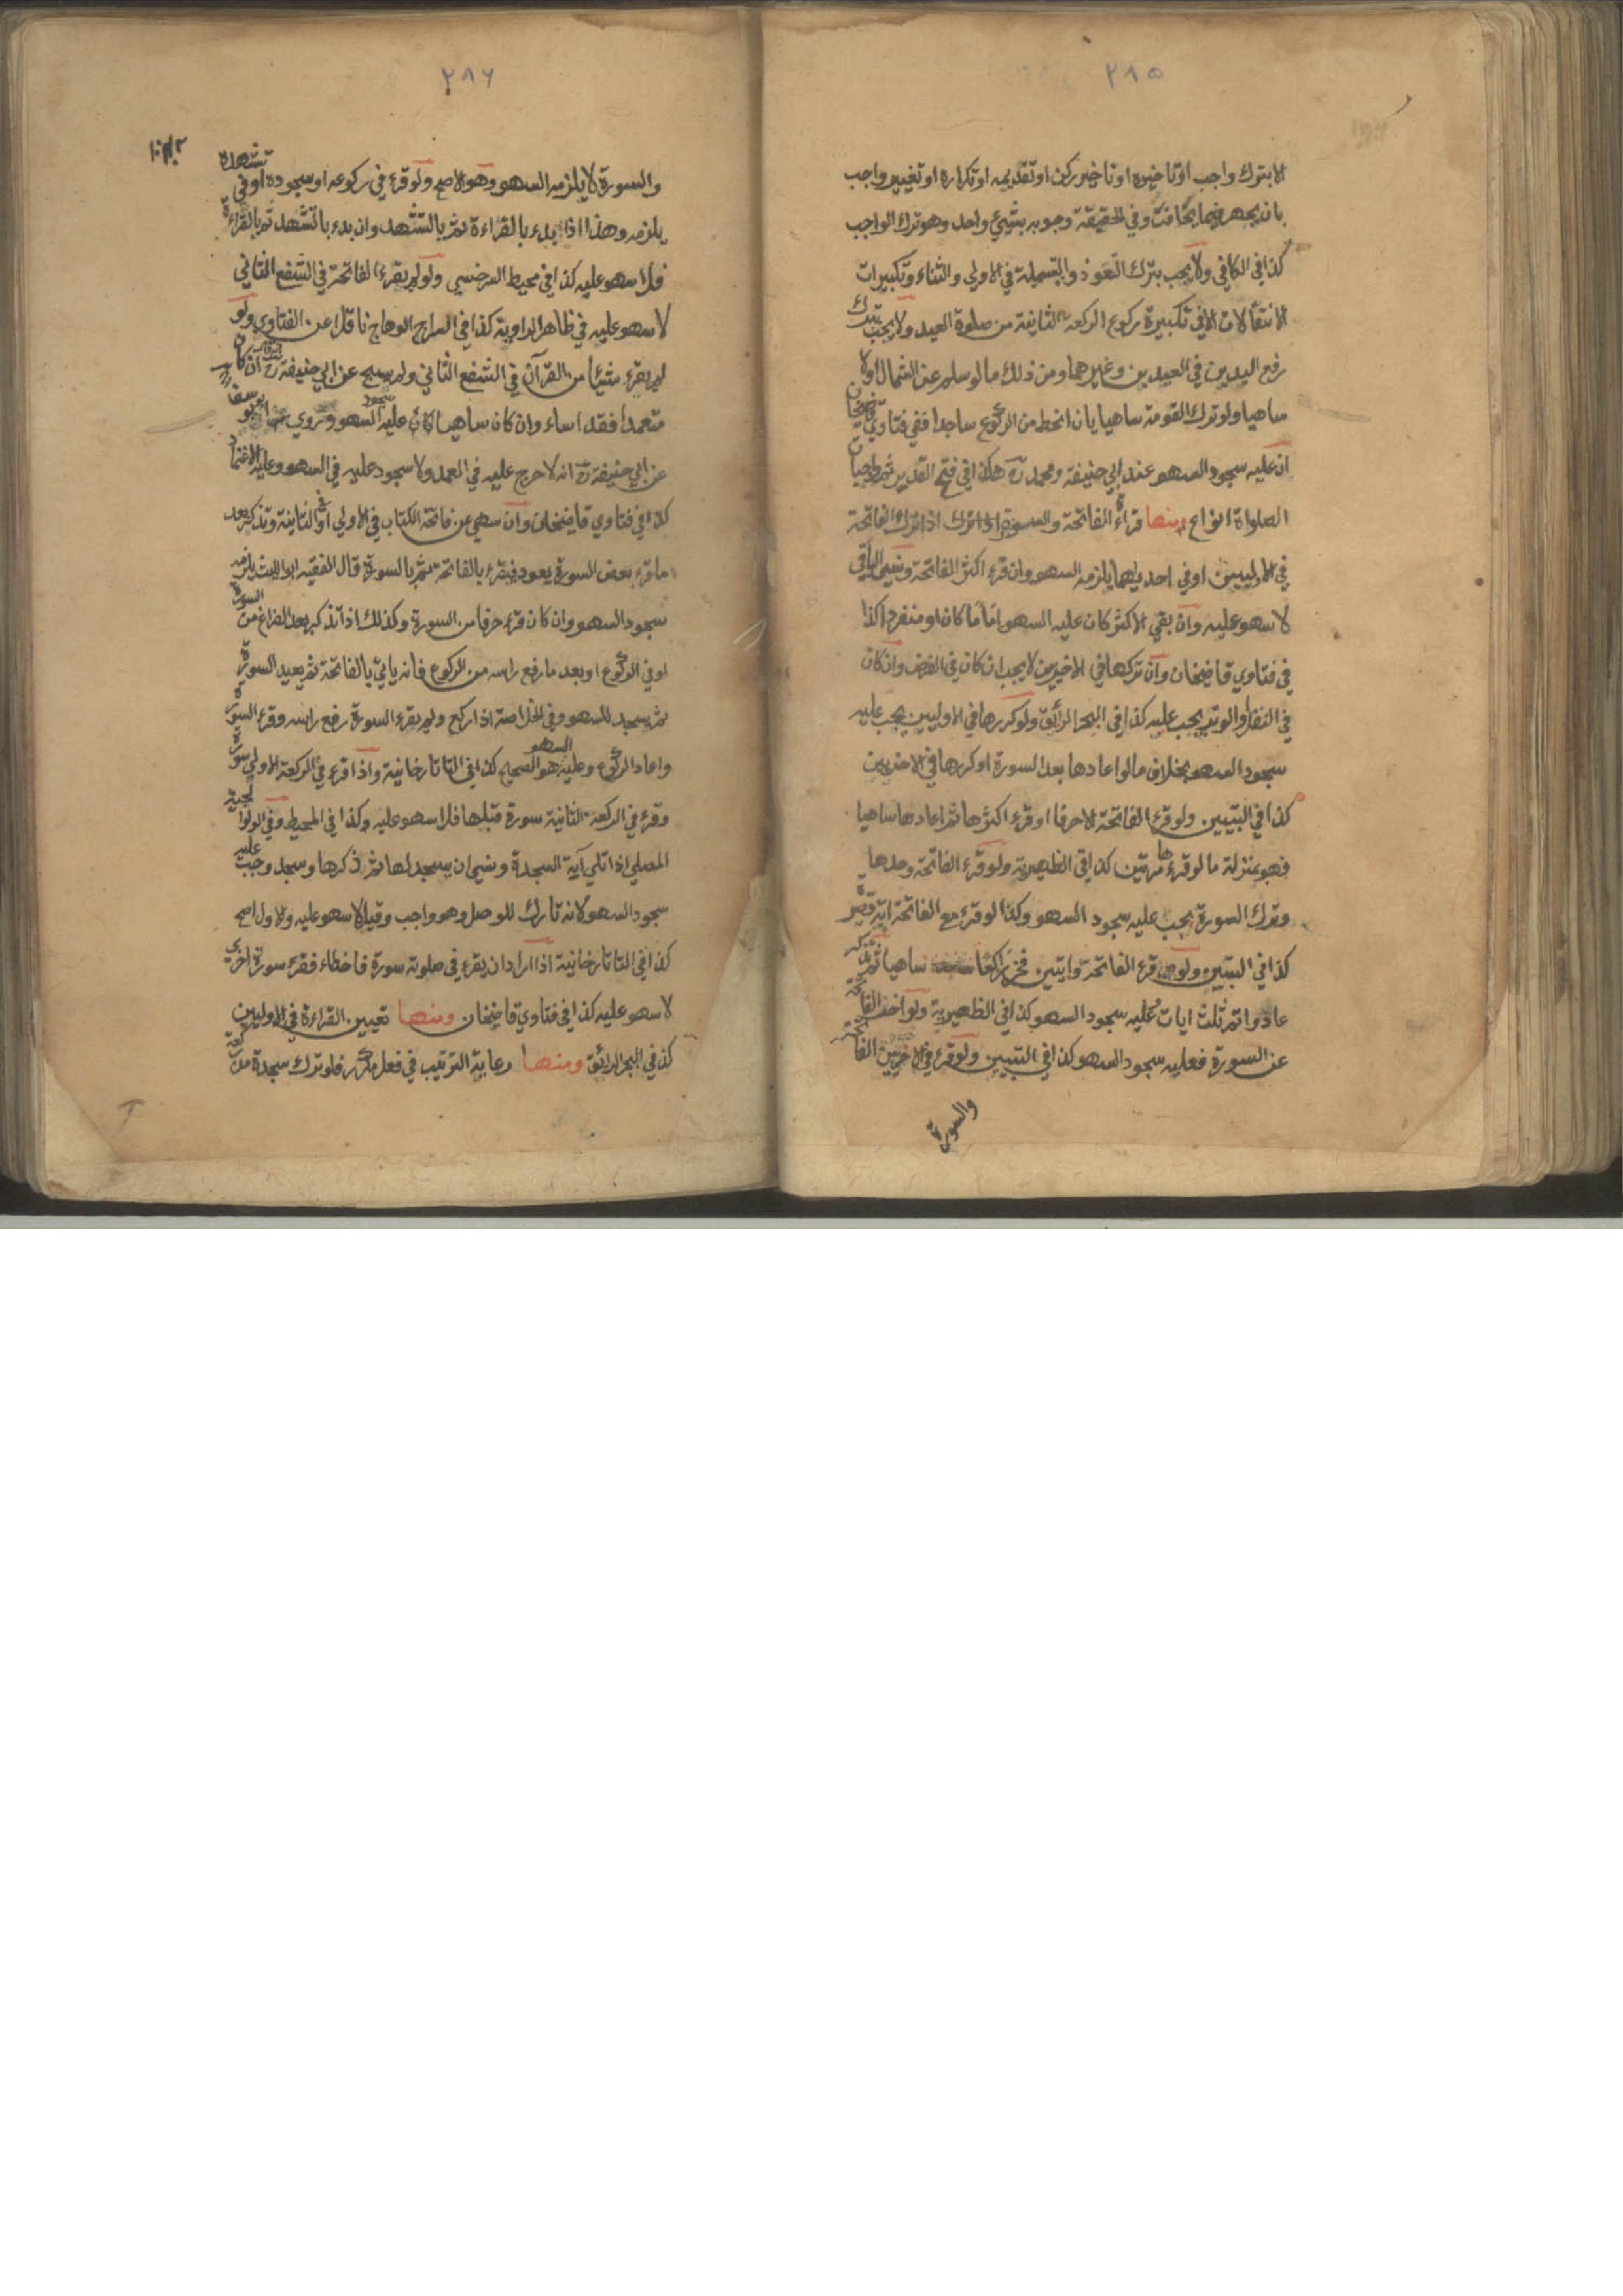 ٢٨٥
الا بترك واجب او تاخيره او تاخير ركن او تقديمه او تكراره او تغيير واجب
بان يجهر فيما يخافت وفي الحقيقة وجوبه بشيئ واحد وهو ترك الواجب
كذا في الكافي ولا يجب بترك التعوذ والبسملة في الاولي والثناء وتكبيرات
الانتقالات الا في تكبيرة ركوع الركعة الثانية من صلوة العيد ولا يجب بترك
رفع اليدين في العيدين وغيرهما ومن ذلك ما لو سلم عن الشمال اولا
ساهيا ولو ترك القومة ساهيا بان انحط من الركوع ساجدا ففي فتاوي قاضيخان
ان عليه سجود السهو عند ابي حنيفة ومحمد رح هكذا في فتح القدير ثم واجبات
الصلواة انواع ومنها قراءة الفاتحة والسورة اذا ترك الفاتحة
في الاوليين او في احديهما يلزمه السهو وان قرء اكثر الفاتحة ونسي الباقي
لا سهو عليه وان بقي الاكثر كان عليه السهو اماما كان او منفردا كذا
في فتاوي قاضيخان وان تركها في الاخيرين لا يجب ان كان في الفرض وان كان
في النفل والوتر يجب عليه كذا في البحر الرائق ولو كررها في الاوليين يجب عليه
سجود السهو بخلاف ما لو اعادها بعد السورة او كررها في الاخريين
كذا في التبيين ولو قرء الفاتحة الا حرفا او قرء اكثرها ثم اعادها ساهيا
فهو بمنزلة ما لو قرءها مرتين كذا في الظهيرية ولو قرء الفاتحة وحدها
وترك السورة يجب عليه سجود السهو وكذا لو قرء مع الفاتحة اية قصيرة
كذا في التبيين ولو قرء الفاتحة وايتين فخر راكعا ساهيا ثم تذكر
عاد واتم ثلث ايات وعليه سجود السهو كذا في الظهيرية ولو اخر الفاتحة
عن السورة فعليه سجود السهو كذا في التبيين ولو قرء في الاخريين الفاتحة
والسورة
٢٨٦
والسورة لا يلزمه السهو وهو الاصح ولو قرء في ركوعه او سجوده او في تشهده
يلزمه وهذا اذا بدء بالقراءة ثم بالتشهد وان بدء بالتشهد ثم بالقراءة
فلا سهو عليه كذا في محيط السرخسي ولو لم يقرء الفاتحة في الشفع الثاني
لا سهو عليه في ظاهر الرواية كذا في السراج الوهاج ناقلا عن الفتاوي ولو
لم يقرء شيئا من القرآن في الشفع الثاني ولم يسبح عن ابي حنيفة رح ان كان
متعمدا فقد اساء وان كان ساهيا كان عليه سجود السهو وروي ابو يوسف
عن ابي حنيفة رح انه لا حرج عليه في العمد ولا سجود عليه في السهو وعليه الاعتماد
كذا في فتاوي قاضيخان وان سهي عن فاتحة الكتاب في الاولي او في الثانية وتذكر بعد
ما قرء بعض السورة يعود فيقرء بالفاتحة ثم بالسورة قال الفقيه ابو الليث يلزمه
سجود السهو وان كان قرء حرفا من السورة وكذلك اذا تذكر بعد الفراغ من السورة
او في الركوع او بعد ما رفع راسه من الركوع فانه ياتي بالفاتحة ثم يعيد السورة
ثم يسجد للسهو وفي الخلاصة اذا ركع ولم يقرء السورة رفع راسه وقرء السورة
واعاد الركوع وعليه السهو هو الصحيح كذا في التاتارخانية واذا قرء في الركعة الاولي سورة
وقرء في الركعة الثانية سورة قبلها فلا سهو عليه وكذا في المحيط وفي الولوالجية
المصلي اذا تلي آية السجدة ونسي ان يسجد لها ثم ذكرها وسجد وجب عليه
سجود السهو لانه تارك للوصل وهو واجب وقيل لا سهو عليه والاول اصح
كذا في التاتارخانية اذا اراد ان يقرء في صلوته سورة فاخطاء فقرء سورة اخري
لا سهو عليه كذا في فتاوي قاضيخان ومنها تعيين القراءة في الاوليين
كذا في البحر الرائق ومنها رعاية الترتيب في فعل مكرر فلو ترك سجدة من ركعة